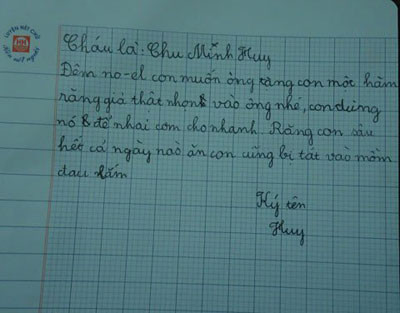 LUYỆN NÉT CHỮ
RÈN NẾT NGƯỜI
Cháu là: Chu Minh Huy
Đêm no-el con muốn ông tặng con một hàm
răng giả thật nhọn vào ông nhé, con dùng
nó để nhai cơm cho nhanh. Răng con sâu
hết cả ngày nào ăn con cũng bị tát vào mồm
đau lắm
Ký tên
Huy